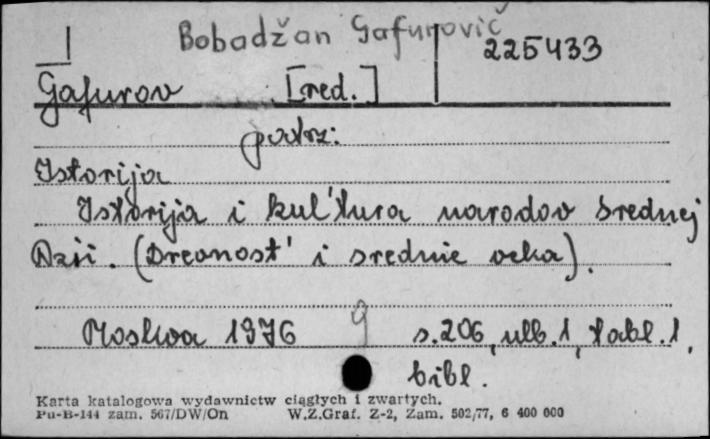 Bobadžan Gafurovič
225433
Gafurov [red.]
patrz:
Istorija
Istorija i kul'tura narodov Srednej
Azii. (Drevnost' i srednie veka).
Moskva 1976 g s. 206, ulb. 1, tabl. 1,
bibl.
Karta katalogowa wydawnictw ciągłych i zwartych.
Pu-B-144 zam. 567/DW/On W.Z.Graf. Z-2, Zam. 502/77, 6 400 000